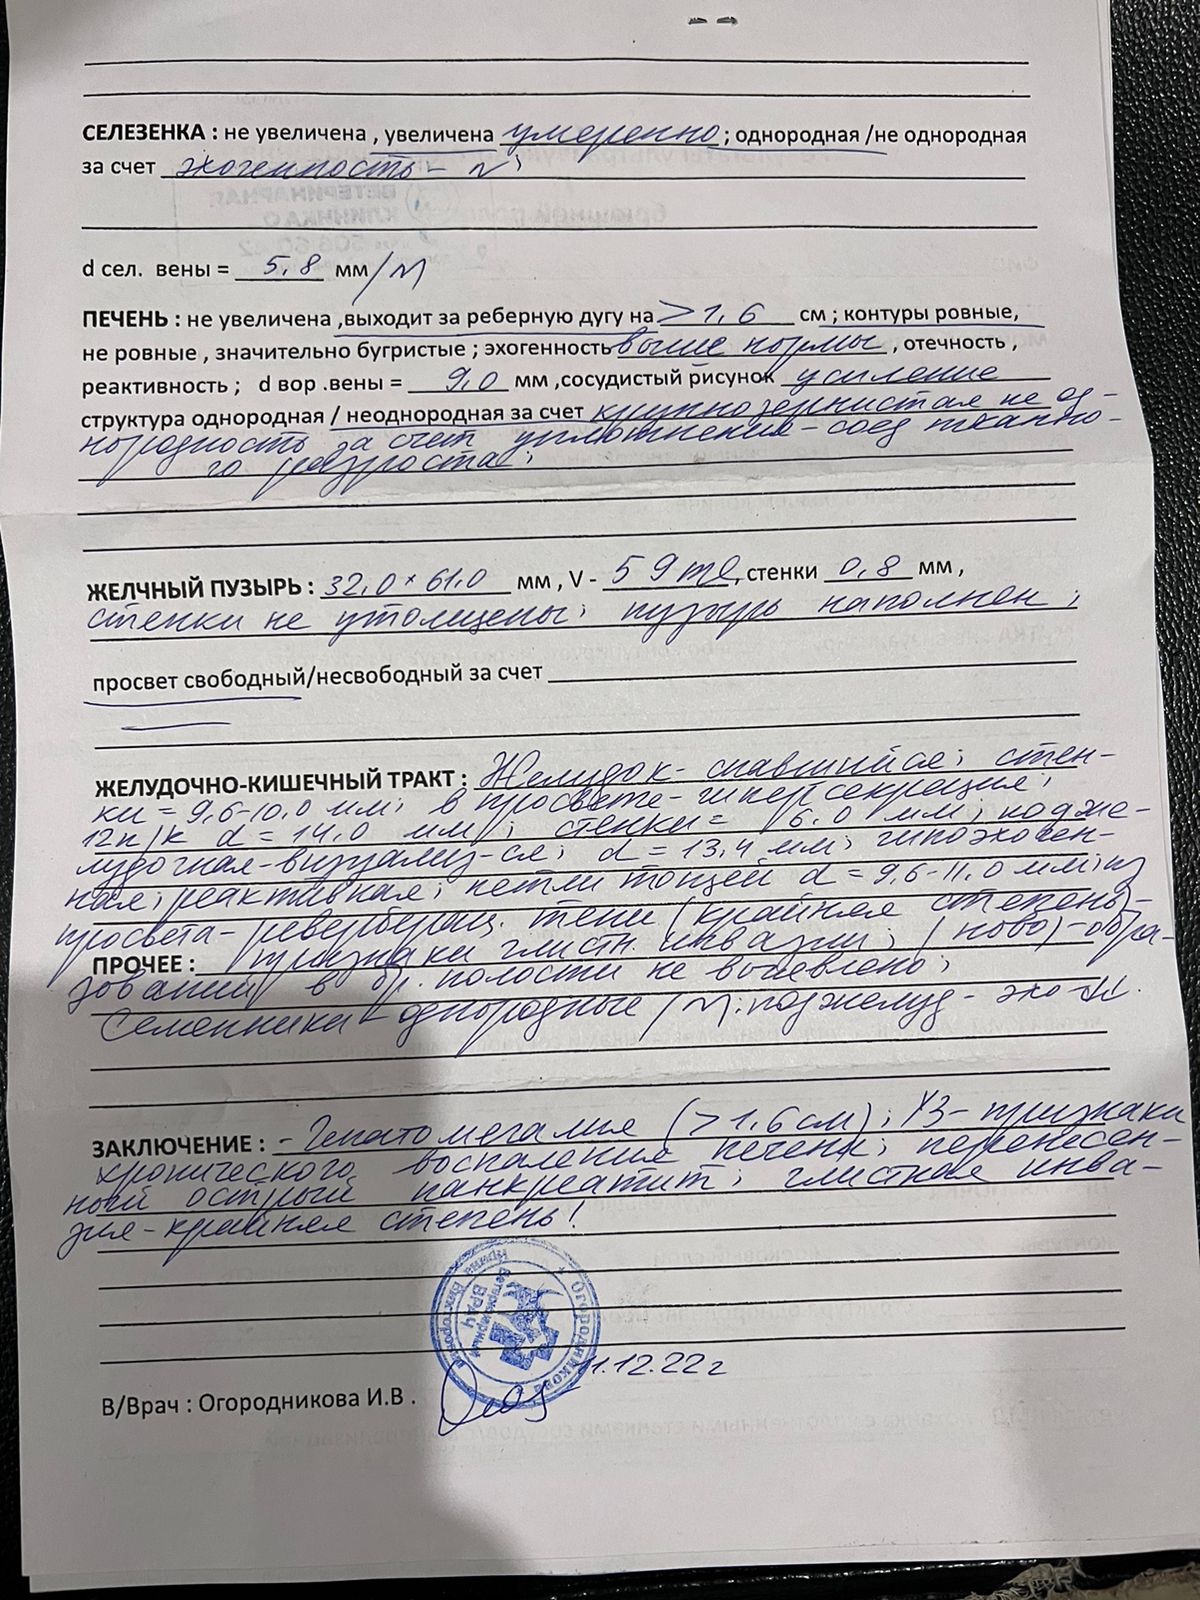 СЕЛЕЗЕНКА : не увеличена , увеличена умеренно ; однородная /не однородная
за счет эхогенность – N ;
d сел. вены = 5,8 мм /N
ПЕЧЕНЬ : не увеличена ,выходит за реберную дугу на >1,6 см ; контуры ровные,
не ровные , значительно бугристые ; эхогенность выше нормы , отечность ,
реактивность ; d вор .вены = 9,0 мм ,сосудистый рисунок усиление
структура однородная / неоднородная за счет крупнозернистая не од-
нородность за счет уплотнения – соед тканно-
го разроста ;
ЖЕЛЧНЫЙ ПУЗЫРЬ : 32,0 × 61,0 мм , V - 59 ml , стенки 0,8 мм ,
стенки не утолщены ; пузырь наполнен ;
просвет свободный/несвободный за счет
ЖЕЛУДОЧНО-КИШЕЧНЫЙ ТРАКТ : Желудок – спавшийся ; стен-
ки = 9,6-10,0 мм ; в просвете – гиперсекреция ;
12п/к d = 14,0 мм ; стенки = 6,0 мм ; подже-
лудочная – визуализ-ся ; d = 13,4 мм ; гипоэхоген-
ная ; реактивная ; петли тощей d = 9,6-11,0 мм ; из
просвета – ревербрац. тени (крайняя степень) –
ПРОЧЕЕ : признаки глистн. инвазии ; (ново)-обра-
зований в бр. полости не выявлено ;
Семенники – однородные /N ; поджелуд –
ЗАКЛЮЧЕНИЕ : - Гепатомегалия (>1,6 см) ; УЗ – признаки
хронического воспаления печени ; перенесен-
ный острый панкреатит ; глистная инва-
зия – крайняя степень !
Огородникова Ирина Викторовна
Ветеринарный
ВРАЧ
11.12.22 г
В/Врач : Огородникова И.В .